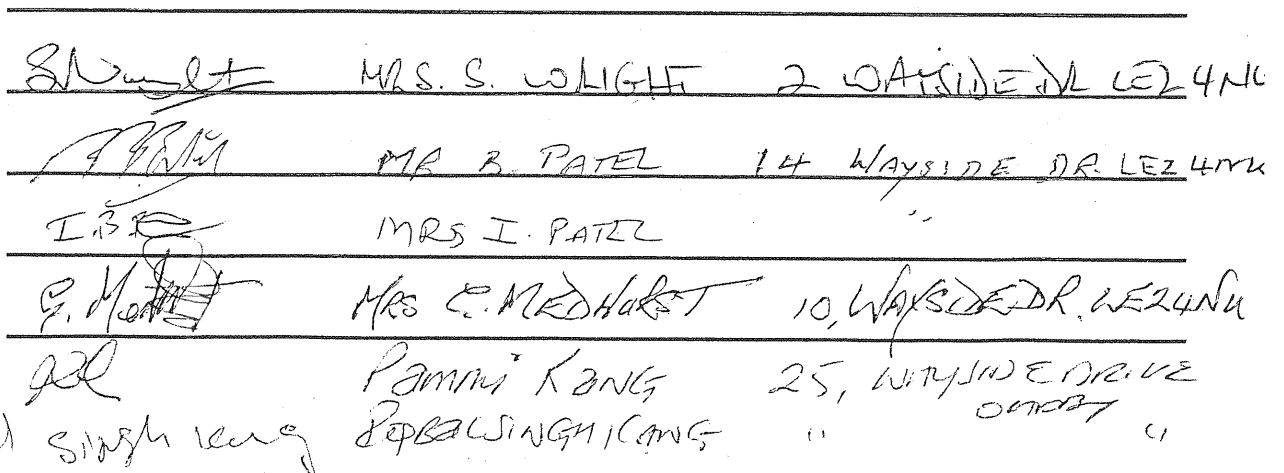 MRS. S. WRIGHT 2 WAYSIDE DR LE2 4NU
MR B. PATEL 14 WAYSIDE DR. LE2 4NU
MRS I. PATEL "
MRS MEDHURST 10, WAYSIDE DR. LE2 4NU
Pammi KANG 25, WAYSIDE DRIVE
OADBY
Singh Kang SINGH KANG " "